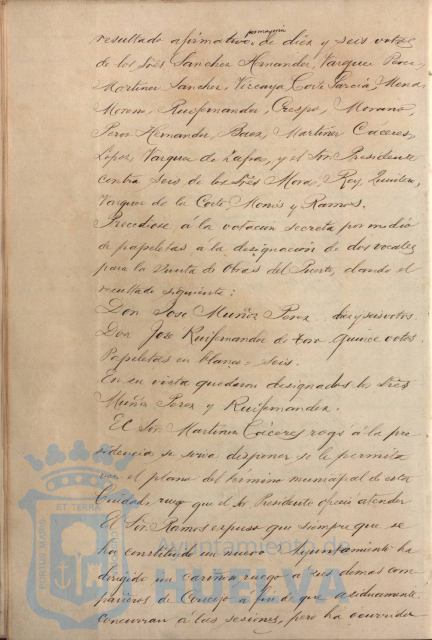 por mayoría
resultado afirmativo, de diez y seis votos
de los Sres Sanchez Hernandez, Vazquez Perez,
Martinez Sanchez, Vizcaya, Corte Garcia, Mena,
Moreno, Ruifernandez, Crespo, Morano,
Peron Hernandez, Baez, Martinez Caceres,
Lopez, Vazquez de Zafra, y el Sr. Presidente
contra seis de los Sres Mora, Rey, Quintero,
Vazquez de la Corte, Monis y Ramos.
Procediose á la votacion secreta por medio
de papeletas á la designacion de dos vocales
para la Junta de Obras del Puerto, dando el
resultado siguiente:
Don Jose Muñiz Perez diez y seis votos.
Don Jose Ruifernandez de Toro quince votos.
Papeletas en blanco = seis.
En su vista quedaron designados los Sres
Muñiz Perez y Ruifernandez.
El Sr. Martinez Cáceres rogó á la pre
sidencia se sirva disponer se le permita
el plano del término municipal de esta
Ciudad, ruego que el Sr Presidente ofreció atender
El Sr. Ramos expuso que siempre que se
ha constituido un nuevo Ayuntamiento ha
dirigido un cariñoso ruego á sus demas com
pañeros de Concejo a fin de que asiduamente
concurran á las sesiones, pero ha ocurrido
ET TERRA
PORTUS MARIS
Ayuntamiento de
HUELVA